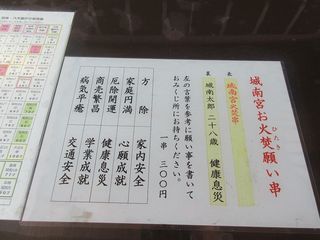 城南宮お火焚願い串
ひたき
表
城南宮火焚串
裏
城南太郎 二十八歳 健康息災
左の言葉を参考に願い事を書いて
おみくじ所にお持ちください。
一串 三〇〇円
方除 家内安全
家庭円満 心願成就
厄除開運 健康息災
商売繁昌 学業成就
病気平癒 交通安全